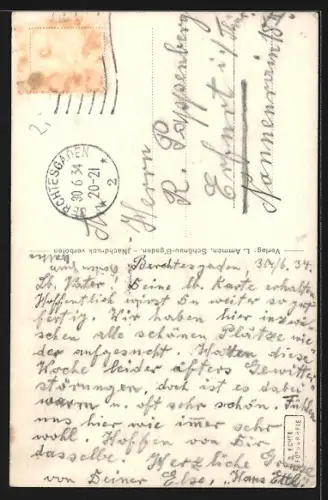 BERCHTESGADEN
30 6 34
20-21
2
Herrn
R. Pappenberg
Erfurt i/Thür.
Nonnenrain
Verlag L. Ammon, Schönau-B'gaden. - Nachdruck verboten
Berchtesgaden, 30/6. 34.
Lb. Vater! Deine lb. Karte erhalten
Hoffentlich wirst Du weiter so gut
fertig. Wir haben hier inzwi-
schen alle schönen Plätze wie
der aufgesucht. Hatten diese
Woche leider öfters Gewitter
störungen, doch ist es dabei
warm u. oft sehr schön. Fühlen
uns hier wie immer sehr
wohl. Hoffen von Dir
dasselbe. Herzliche Grüsse
von Deiner Else, Hans
ECHTE
FOTOGRAFIE